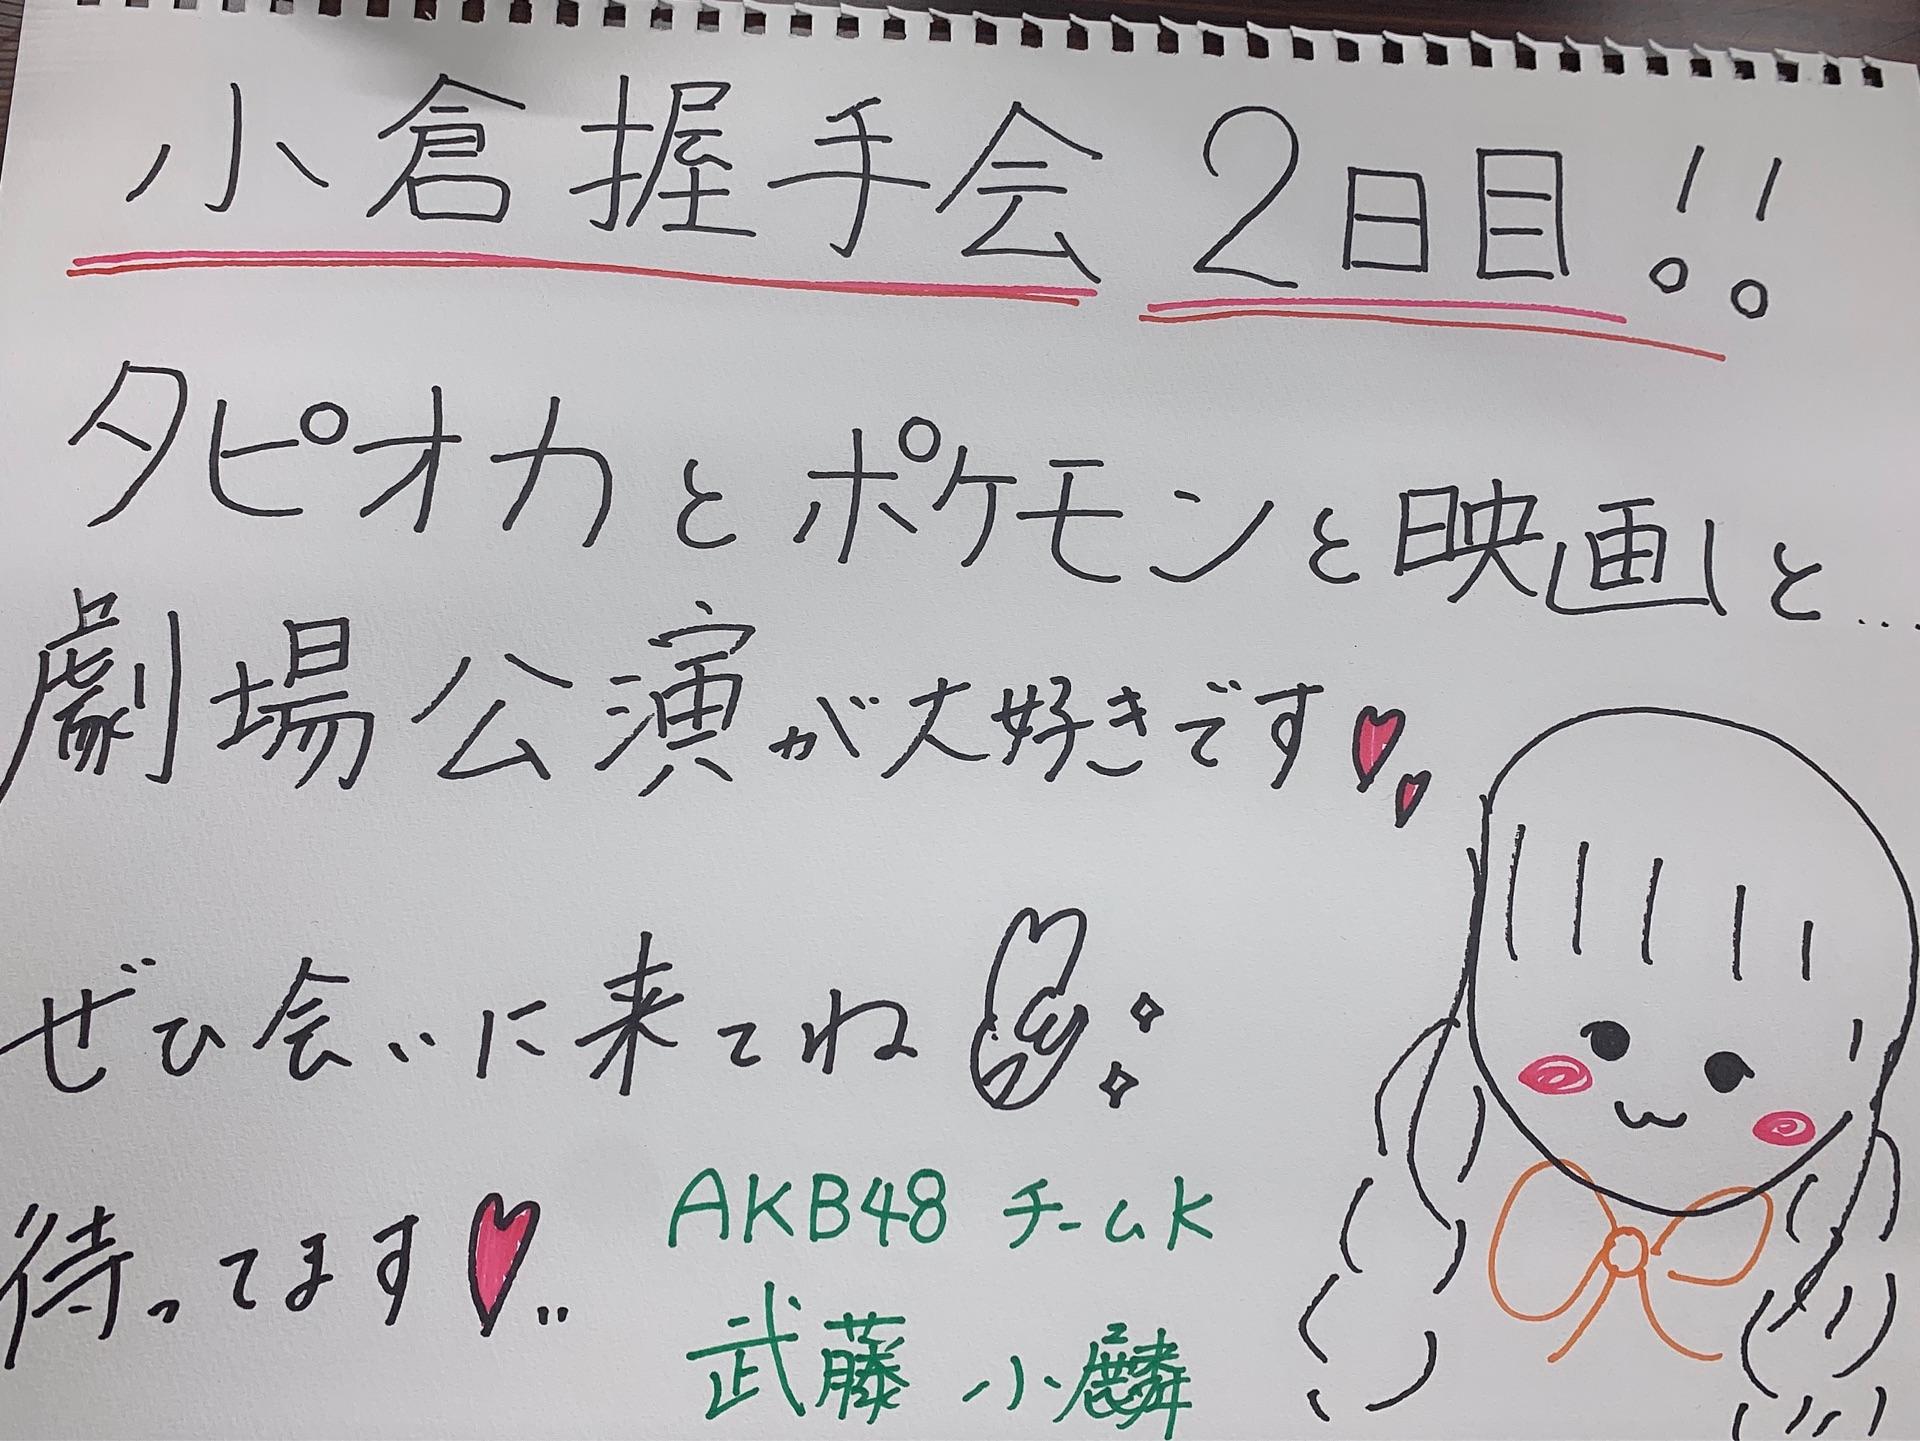 小倉握手会 2日目!!
タピオカとポケモンと映画と...
劇場公演が大好きです
ぜひ会いに来てね
待ってます
AKB48 チームK
武藤 小麟